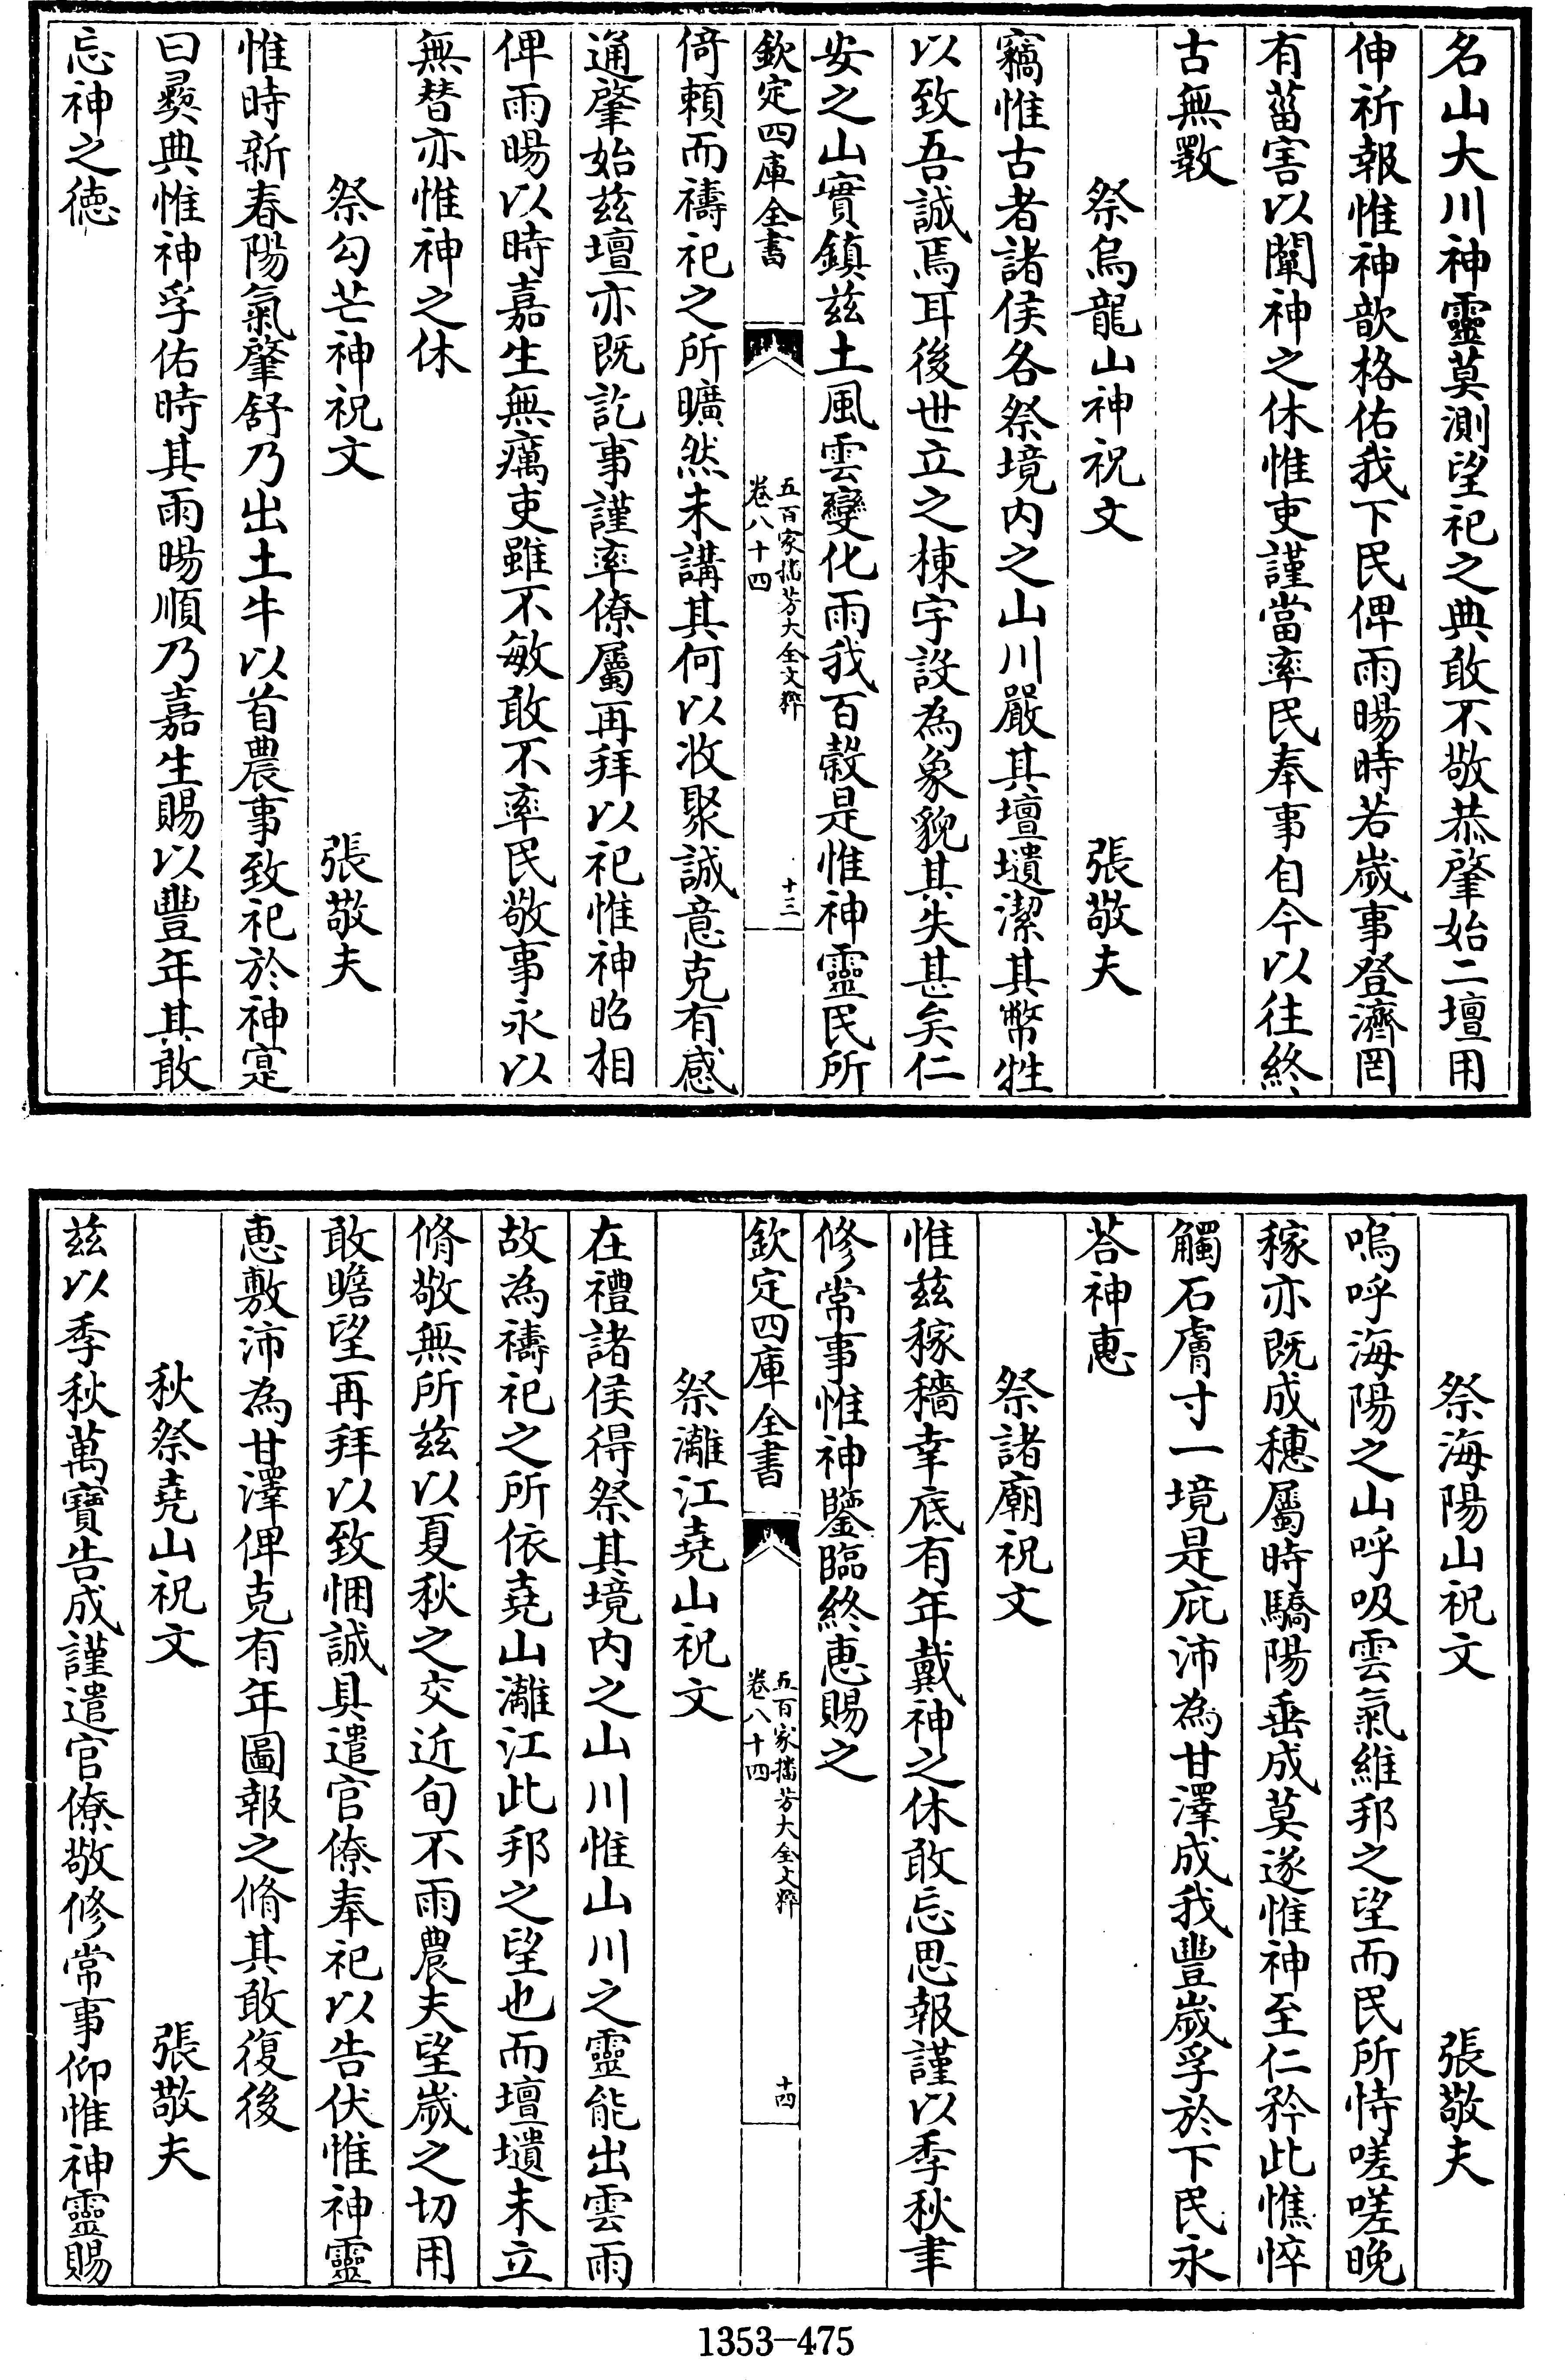 名山大川神靈莫測望祀之典敢不敬恭肇始二壇用
伸祈報惟神歆格佑我下民俾雨暘時若嵗事登濟罔
有菑害以闡神之休惟吏謹當率民奉事自今以往終
古無斁
祭烏龍山神祝文 張敬夫
竊惟古者諸侯各祭境内之山川嚴其壇壝潔其幣牲
以致吾誠焉耳後世立之棟宇設為象貌其失甚矣仁
安之山實鎮兹土風雲變化雨我百榖是惟神靈民所
欽定四庫全書
五百家播芳大全文粹
卷八十四
十三
倚頼而禱祀之所曠然未講其何以收聚誠意克有感
通肇始兹壇亦既訖事謹率僚屬再拜以祀惟神昭相
俾雨暘以時嘉生無癘吏雖不敏敢不率民敬事永以
無替亦惟神之休
祭勾芒神祝文 張敬夫
惟時新春陽氣肇舒乃出土牛以首農事致祀於神寔
曰彞典惟神孚佑時其雨暘順乃嘉生賜以豐年其敢
忘神之徳
祭海陽山祝文 張敬夫
嗚呼海陽之山呼吸雲氣維邦之望而民所恃嗟嗟晚
稼亦既成穗屬時驕陽垂成莫遂惟神至仁矜此憔悴
觸石膚寸一境是庇沛為甘澤成我豐嵗孚於下民永
荅神惠
祭諸廟祝文
惟兹稼穡幸底有年戴神之休敢忘思報謹以季秋聿
修常事惟神鑒臨終惠賜之
欽定四庫全書
五百家播芳大全文粹
卷八十四
十四
祭灕江堯山祝文
在禮諸侯得祭其境内之山川惟山川之靈能出雲雨
故為禱祀之所依堯山灕江此邦之望也而壇壝未立
脩敬無所兹以夏秋之交近旬不雨農夫望嵗之切用
敢瞻望再拜以致悃誠具遣官僚奉祀以告伏惟神靈
惠敷沛為甘澤俾克有年圖報之脩其敢復後
秋祭堯山祝文 張敬夫
兹以季秋萬寶告成謹遣官僚敬修常事仰惟神靈賜
1353-475